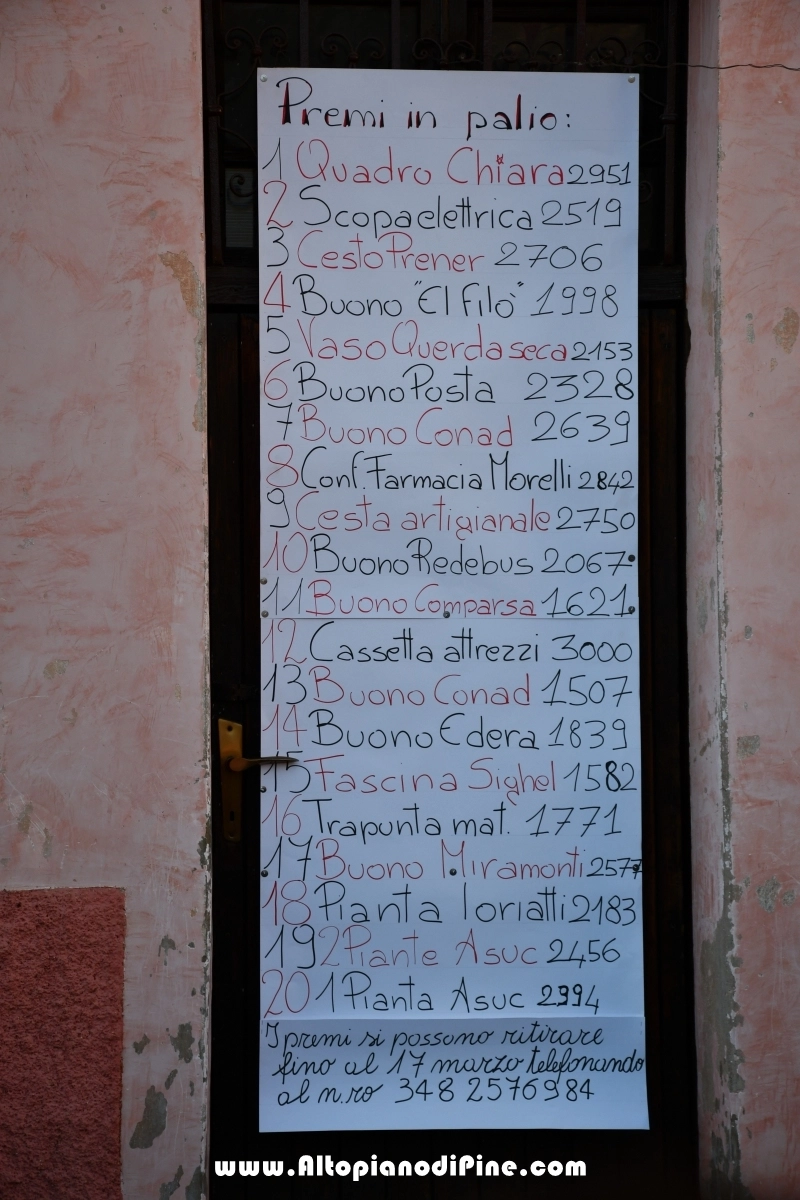 Premi in palio:
1 Quadro Chiara 2951
2 Scopa elettrica 2519
3 Cesto Prener 2706
4 Buono "El Filò" 1998
5 Vaso Querdaseca 2153
6 Buono Posta 2328
7 Buono Conad 2639
8 Conf. Farmacia Morelli 2842
9 Cesta artigianale 2750
10 Buono Redebus 2067
11 Buono Comparsa 1621
12 Cassetta attrezzi 3000
13 Buono Conad 1507
14 Buono Edera 1839
15 Fascina Sighel 1582
16 Trapunta mat. 1771
17 Buono Miramonti 2577
18 Pianta Ioriatti 2183
19 2 Piante Asuc 2456
20 1 Pianta Asuc 2394
I premi si possono ritirare
fino al 17 marzo telefonando
al n.ro 348 2576984
www.AltopianodiPine.com